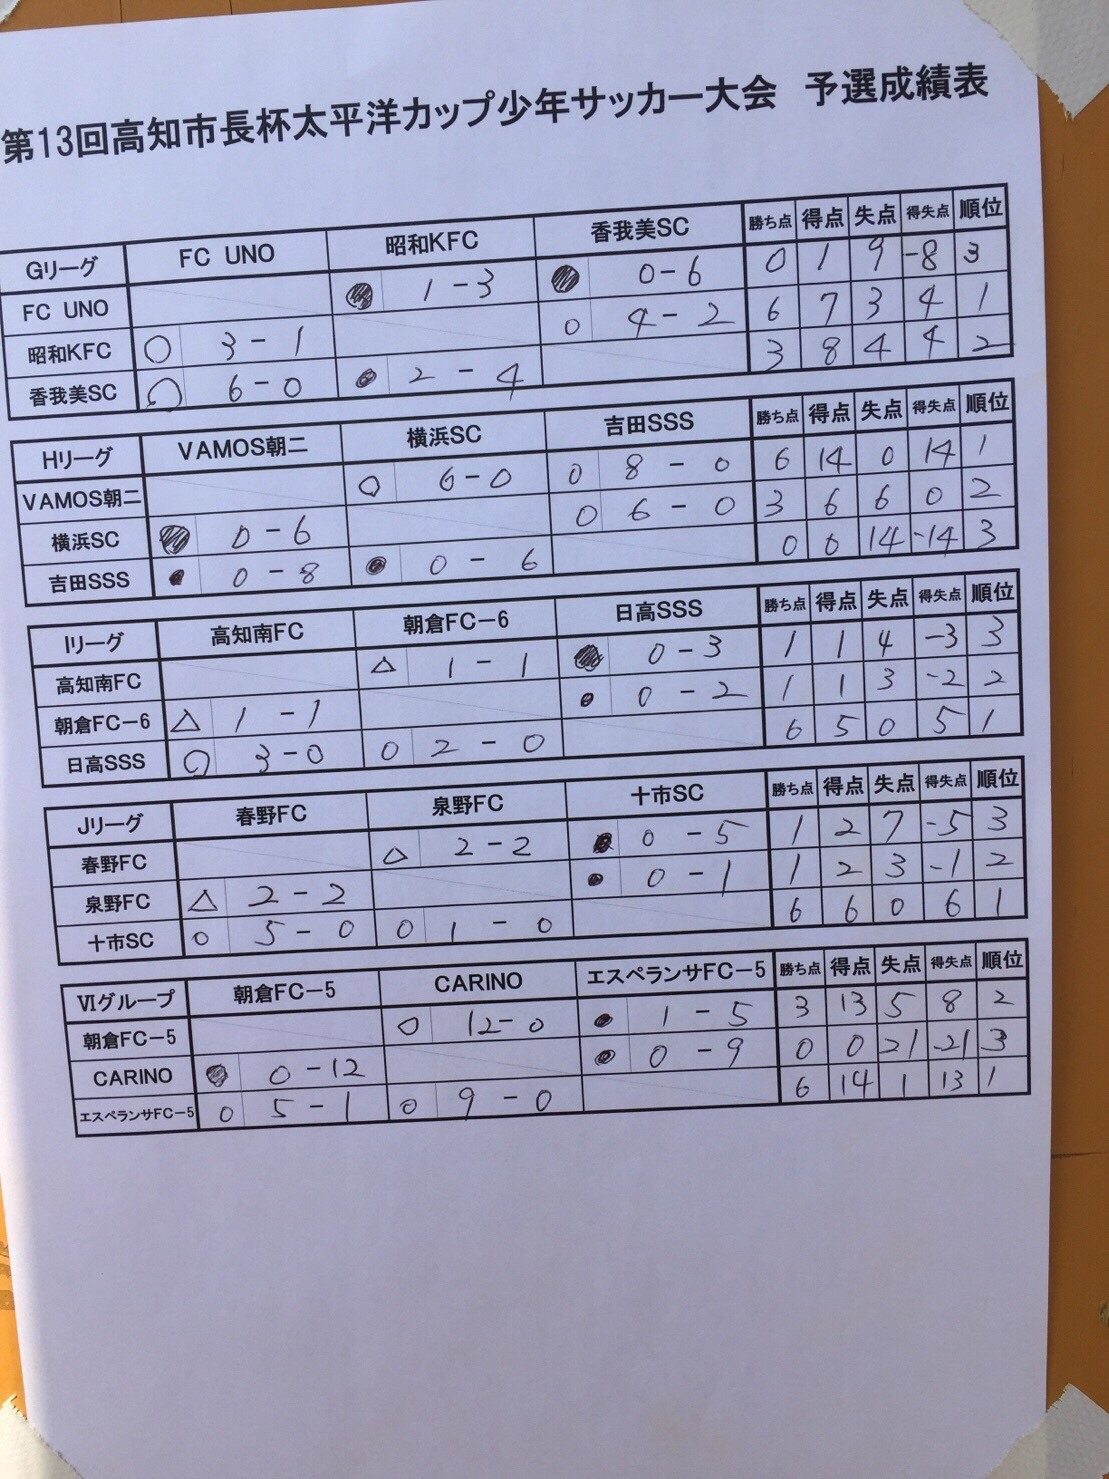 第13回高知市長杯太平洋カップ少年サッカー大会 予選成績表
Gリーグ FC UNO 昭和KFC 香我美SC 勝ち点 得点 失点 得失点 順位
FC UNO ● 1-3 ● 0-6 0 1 9 -8 3
昭和KFC ○ 3-1 ○ 4-2 6 7 3 4 1
香我美SC ○ 6-0 ● 2-4 3 8 4 4 2
Hリーグ VAMOS朝二 横浜SC 吉田SSS 勝ち点 得点 失点 得失点 順位
VAMOS朝二 ○ 6-0 ○ 8-0 6 14 0 14 1
横浜SC ● 0-6 ○ 6-0 3 6 6 0 2
吉田SSS ● 0-8 ● 0-6 0 0 14 -14 3
Iリーグ 高知南FC 朝倉FC-6 日高SSS 勝ち点 得点 失点 得失点 順位
高知南FC △ 1-1 ● 0-3 1 1 4 -3 3
朝倉FC-6 △ 1-1 ● 0-2 1 1 3 -2 2
日高SSS ○ 3-0 ○ 2-0 6 5 0 5 1
Jリーグ 春野FC 泉野FC 十市SC 勝ち点 得点 失点 得失点 順位
春野FC △ 2-2 ● 0-5 1 2 7 -5 3
泉野FC △ 2-2 ● 0-1 1 2 3 -1 2
十市SC ○ 5-0 ○ 1-0 6 6 0 6 1
Ⅵグループ 朝倉FC-5 CARINO エスペランサFC-5 勝ち点 得点 失点 得失点 順位
朝倉FC-5 ○ 12-0 ● 1-5 3 13 5 8 2
CARINO ● 0-12 ● 0-9 0 0 21 -21 3
エスペランサFC-5 ○ 5-1 ○ 9-0 6 14 1 13 1